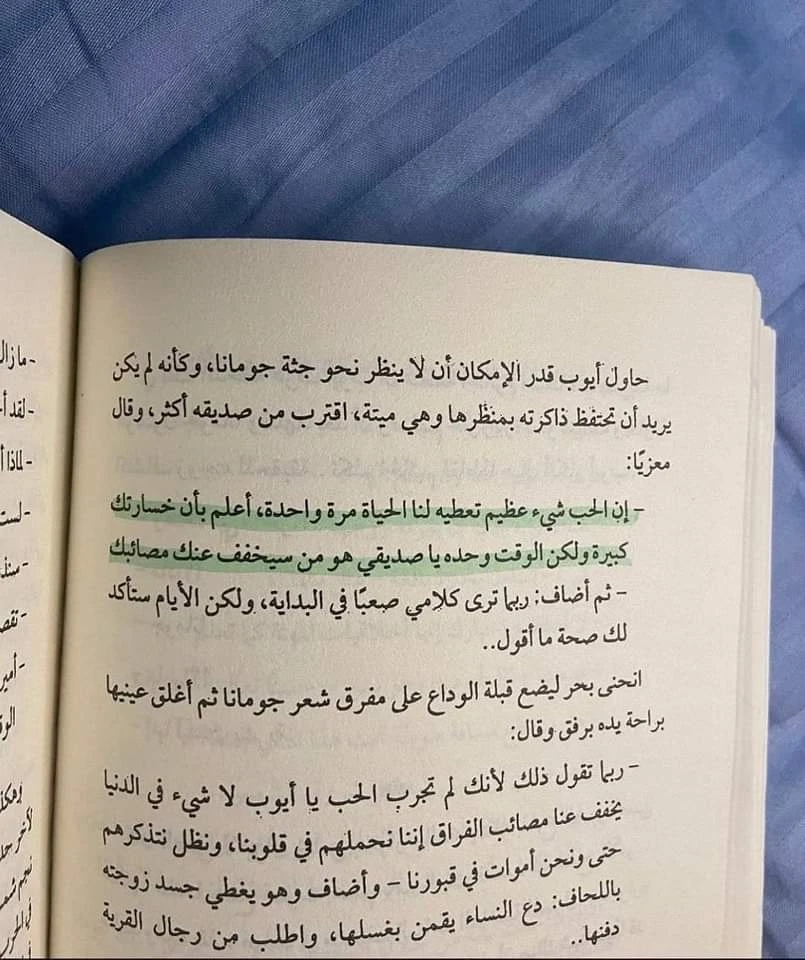 حاول أيوب قدر الإمكان أن لا ينظر نحو جثة جومانا، وكأنه لم يكن
يريد أن تحتفظ ذاكرته بمنظرها وهي ميتة، اقترب من صديقه أكثر، وقال
معزيًا:
- إن الحب شيء عظيم تعطيه لنا الحياة مرة واحدة، أعلم بأن خسارتك
كبيرة ولكن الوقت وحده يا صديقي هو من سيخفف عنك مصائبك
- ثم أضاف: ربما ترى كلامي صعبًا في البداية، ولكن الأيام ستأكد
لك صحة ما أقول..
انحنى بحر ليضع قبلة الوداع على مفرق شعر جومانا ثم أغلق عينيها
براحة يده برفق وقال:
- ربما تقول ذلك لأنك لم تجرب الحب يا أيوب لا شيء في الدنيا
يخفف عنا مصائب الفراق إننا نحملهم في قلوبنا، ونظل نتذكرهم
حتى ونحن أموات في قبورنا - وأضاف وهو يغطي جسد زوجته
باللحاف: دع النساء يقمن بغسلها، واطلب من رجال القرية
دفنها..
- ما زال
- لقد أ
- لماذا أ
- لست